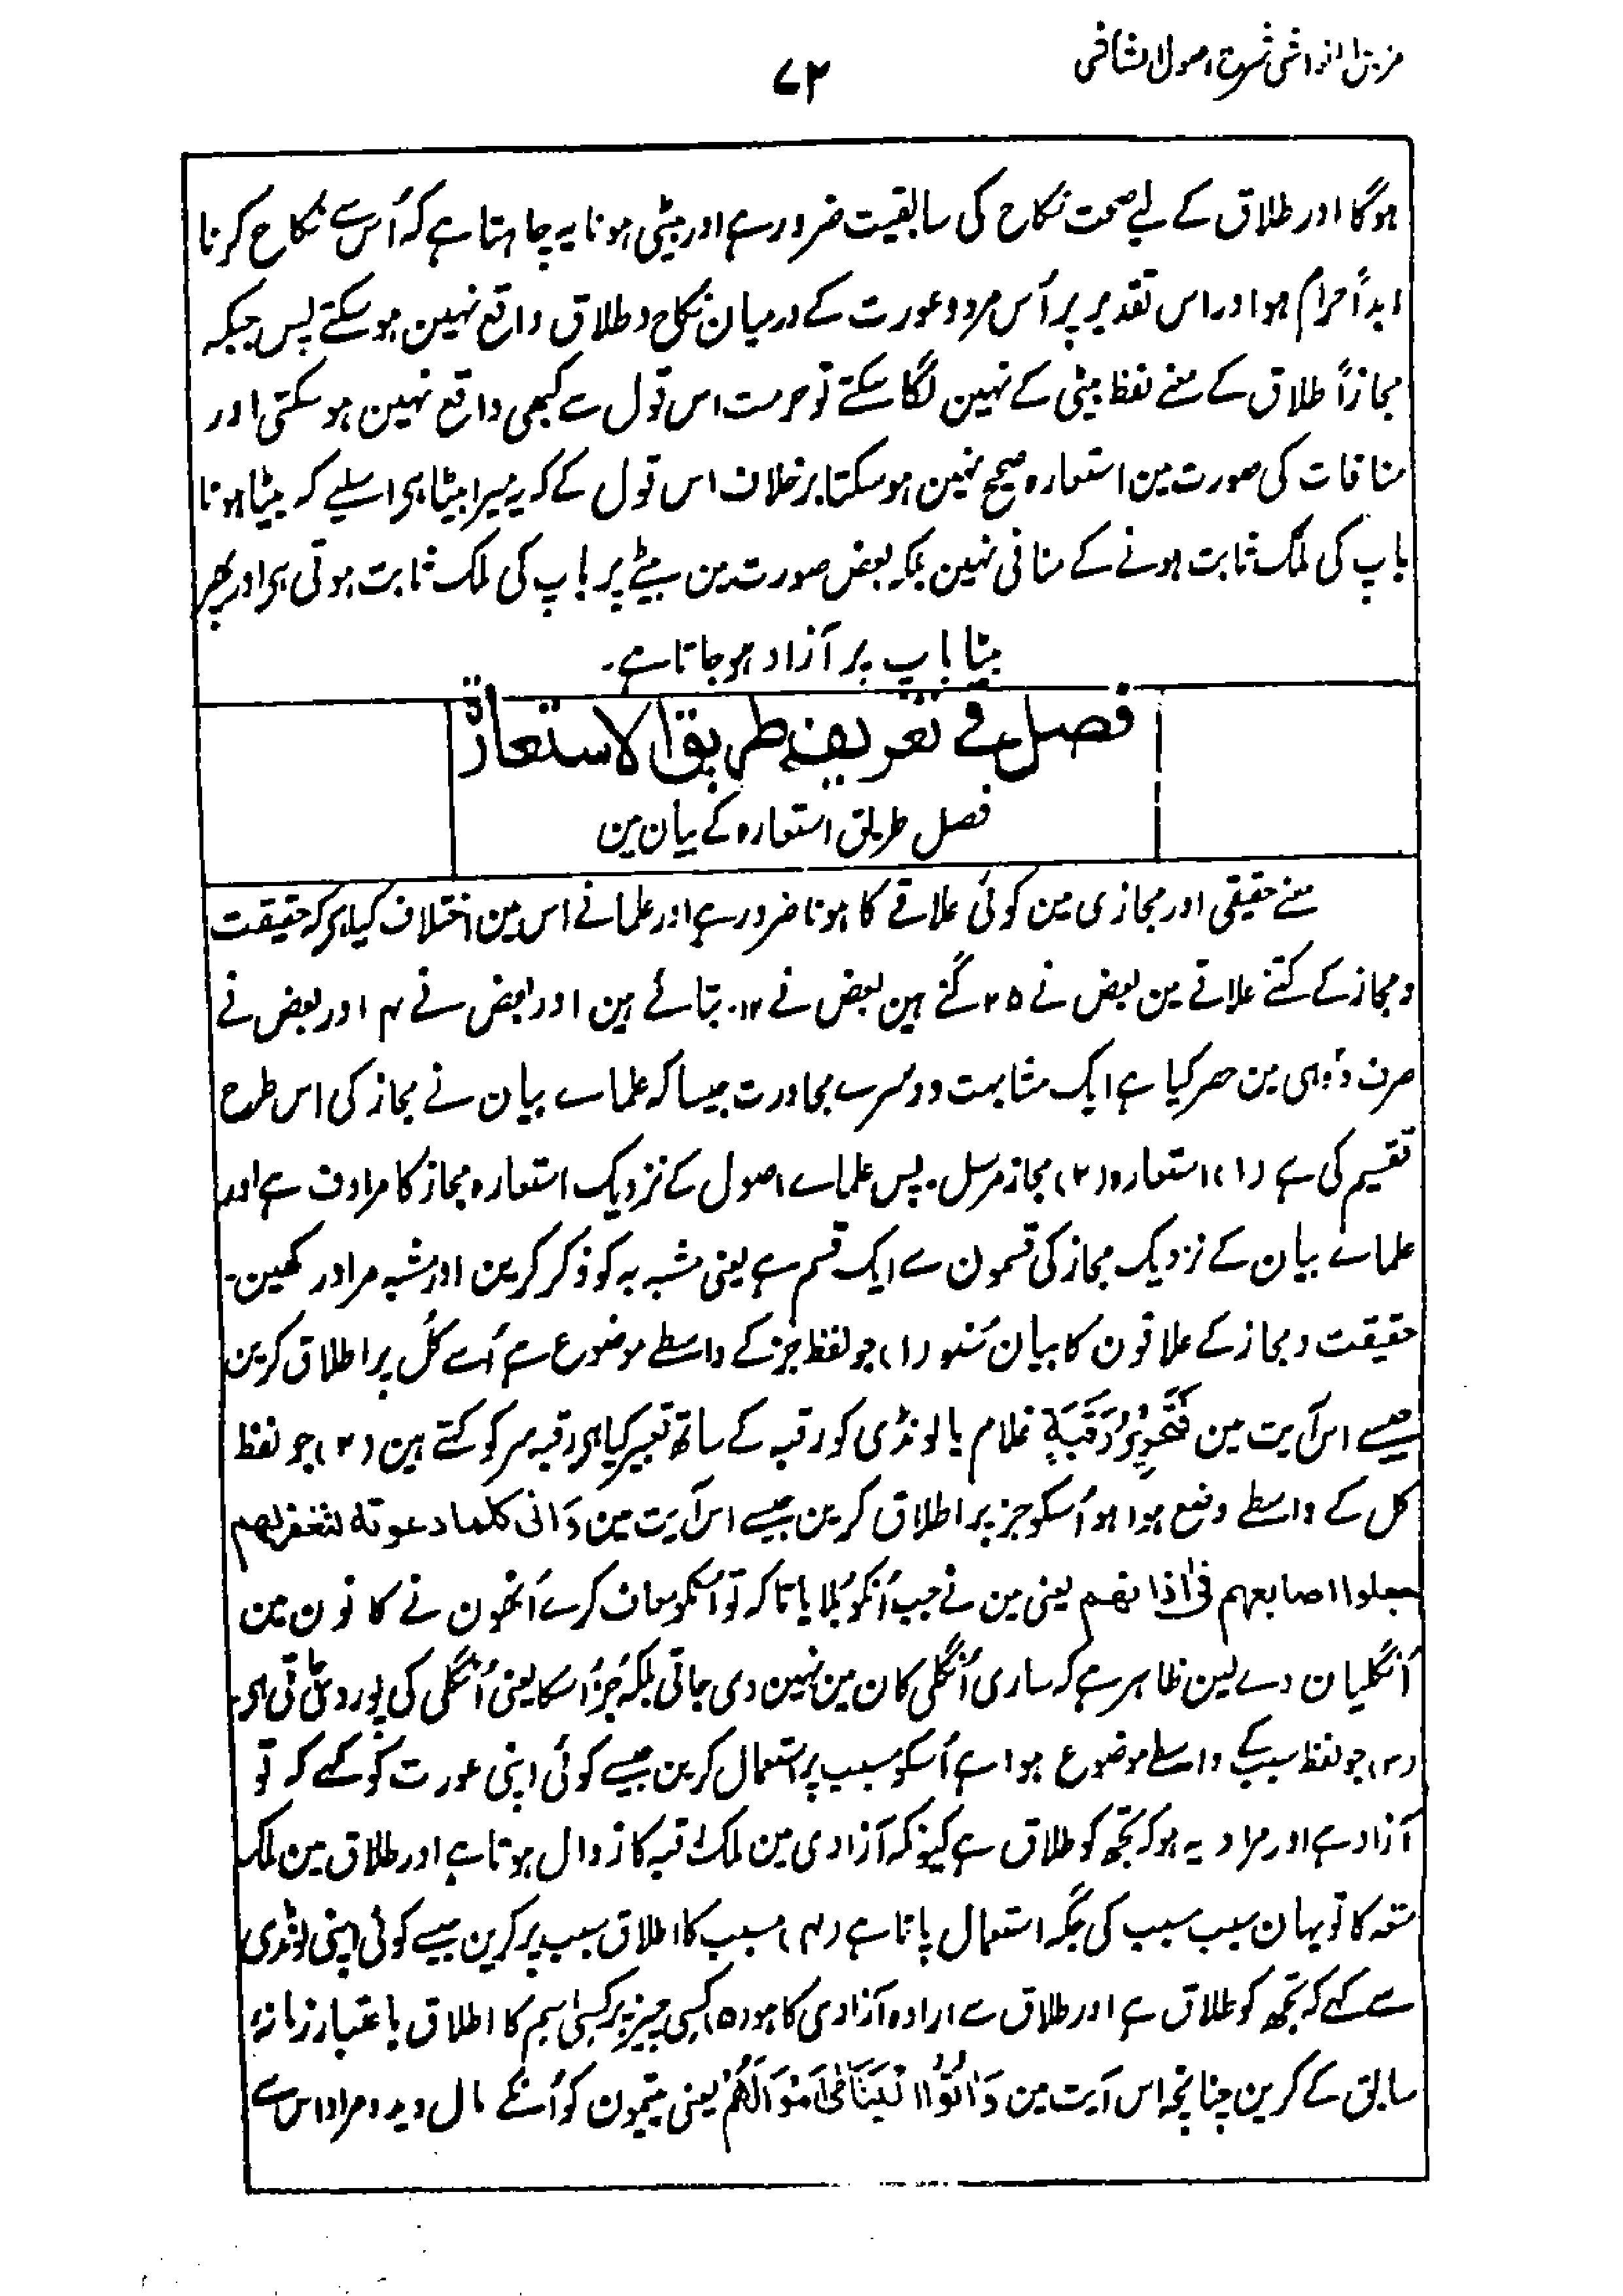 مزیل الغواشی شرح اصول الشاشی
۷۲
ہوگا اور طلاق کے لیے صحت نکاح کی سابقیت ضرور ہے اور بیٹی ہونا یہ چاہتا ہے کہ اُس سے نکاح کرنا
ابداً حرام ہو اور اس تقدیر پر اُس مرد و عورت کے درمیان نکاح و طلاق واقع نہین ہو سکتے پس جبکہ
مجازاً طلاق کے معنے لفظ بیٹی کے نہین لگا سکتے تو حرمت اس قول سے کبھی واقع نہین ہو سکتی اور
منافات کی صورت مین استعارہ صحیح نہین ہو سکتا برخلاف اس قول کے کہ یہ میرا بیٹا ہی اسلیے کہ بیٹا ہونا
باپ کی ملک ثابت ہونے کے منافی نہین بلکہ بعض صورت مین بیٹے پر باپ کی ملک ثابت ہوتی ہی اور پھر
بیٹا باپ پر آزاد ہو جاتا ہے۔
فصل فی تعریف طریق الاستعارۃ
فصل طریق استعارہ کے بیان مین
معنے حقیقی اور مجازی مین کوئی علاقے کا ہونا ضرور ہے اور علما نے اس مین اختلاف کیا ہی کہ حقیقت
و مجاز کے کتنے علاقے ہین بعض نے ۲۵ گنے ہین بعض نے ۱۲ بتائے ہین اور بعض نے ۴ اور بعض نے
صرف دو ہی مین حصر کیا ہے ایک مشابہت دوسرے مجاورت جیسا کہ علماے بیان نے مجاز کی اس طرح
تقسیم کی ہے (۱) استعارہ (۲) مجاز مرسل۔ پس علماے اصول کے نزدیک استعارہ مجاز کا مرادف ہے اور
علماے بیان کے نزدیک مجاز کی قسمون سے ایک قسم ہے یعنی مشبہ بہ کو ذکر کرین اور مشبہ مراد رکھین۔
حقیقت و مجاز کے علاقون کا بیان سُنو (۱) جو لفظ جز کے واسطے موضوع ہے اُسے کُل پر اطلاق کرین
جیسے اس آیت مین فَتَحْرِیْرُ رَقَبَۃٍ غلام یا لونڈی کو رقبہ کے ساتھ تعبیر کیا ہی رقبہ سر کو کہتے ہین (۲) جو لفظ
کل کے واسطے وضع ہوا ہو اُسکو جز پر اطلاق کرین جیسے اس آیت مین وَانی کلما دعوتہ لتغفر لھم
جعلوا اصابعہم فی اٰذانھم یعنی مین نے جب اُنکو بُلایا تاکہ تو اُنکو معاف کرے اُنھون نے کانون مین
اُنگلیان دے لین ظاہر ہے کہ ساری اُنگلی کان مین نہین دی جاتی بلکہ جُز اُسکا یعنی اُنگلی کی پور دی جاتی ہی۔
(۳) جو لفظ سبب کے واسطے موضوع ہوا ہے اُسکو مسبب پر استعمال کرین جیسے کوئی اپنی عورت کو کہے کہ تو
آزاد ہے اور مراد یہ ہو کہ تجھ کو طلاق ہے کیونکہ آزادی مین ملک رقبہ کا زوال ہوتا ہے اور طلاق مین ملک
متعہ کا تو یہان سبب مسبب کی جگہ استعمال پاتا ہے (۴) مسبب کا اطلاق سبب پر کرین جیسے کوئی اپنی لونڈی
سے کہے کہ تجھ کو طلاق ہے اور طلاق سے ارادہ آزادی کا ہو (۵) کسی چیز پر کسی اسم کا اطلاق باعتبار زمانۂ
سابق کے کرین چنانچہ اس آیت مین وَاٰتُوا الْیَتَامٰی اَمْوَالَھُمْ یعنی یتیمون کو اُنکے مال دیدو مراد اس سے